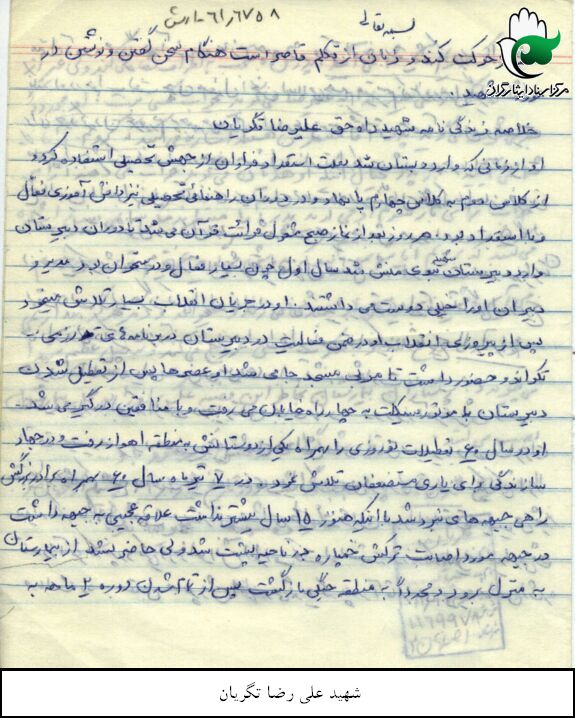 بسمه تعالی
حرکت کند و زبان از تکلم قاصر است هنگام سخن گفتن و نوشتن از
شهید
مرکز اسناد ایثارگران
خلاصه زندگی نامه شهید راه حق علیرضا تگریان
او از زمانی که وارد دبستان شد بعلت استعداد فراوان از جهش تحصیلی استفاده کرد و
از کلاس دوم به کلاس چهارم پا نهاد و در دوران راهنمائی تحصیلی نیز دانش آموزی فعال
و با استعداد بود هر روز بعد از نماز صبح مشغول قرائت قرآن می شد تا دوران دبیرستان
وارد دبیرستان نبوی منش شد سال اول چون بسیار فعال و درسخوان بود مدیر و
دبیران او را خیلی دوست می داشتند او در جریان انقلاب بسیار تلاش مینمود
پس از پیروزی انقلاب او در ضمن فعالیت در دبیرستان در برنامه های رزمی
تکواندو حضور داشت تا مربی مسجد جامعی شد او عصرها پس از تعطیل شدن
دبیرستان با موتور سیکلت به چهار راه خیابان می رفت و با منافقین درگیر می شد
او در سال ۶۰ تعطیلات نوروزی را بهمراه یکی از دوستانش به منطقه اهواز رفت و در جهاد
سازندگی برای یاری مستضعفان تلاش نمود. در ۷ تیرماه سال ۶۰ بهمراه برادر بزرگش
راهی جبهه های نبرد شد با اینکه هنوز ۱۵ سال بیشتر نداشت علاقه عجیبی به جبهه داشت
در جبهه مورد اصابت ترکش خمپاره از ناحیه پشت شد ولی حاضر نشد از بیمارستان
به منزل برود و مجدداً به منطقه جنگی بازگشت پس از تمام شدن دوره ۲ ماهه به
شهید علی رضا تگریان